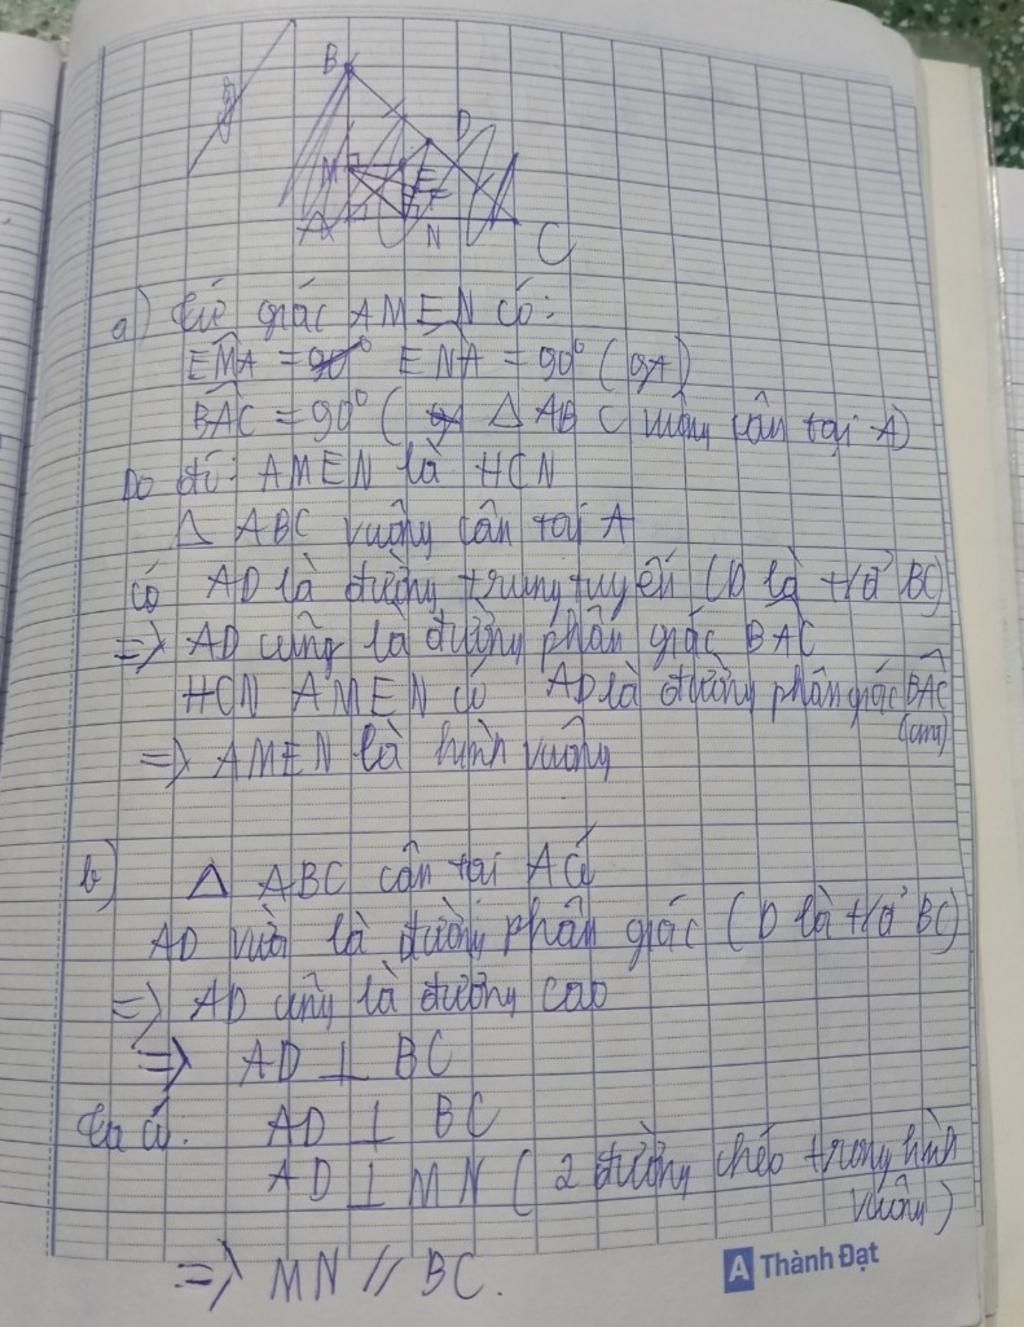 B
D
M
E
F
A
N
C
a) tứ giác AMEN có:
EMA = 90° ENA = 90° (gt)
BAC = 90° ( Δ ABC vuông cân tại A)
Do đó: AMEN là HCN
Δ ABC vuông cân tại A
có AD là đường trung tuyến (D là t/đ BC)
=> AD cũng là đường phân giác BAC
HCN AMEN có AD là đường phân giác BAC
(cmt)
=> AMEN là hình vuông
b) Δ ABC cân tại A có
AD vừa là đường phân giác (D là t/đ BC)
=> AD cũng là đường cao
=> AD ⊥ BC
ta có: AD ⊥ BC
AD ⊥ MN ( 2 đường chéo trong hình
vuông)
=> MN // BC.
A Thành Đạt